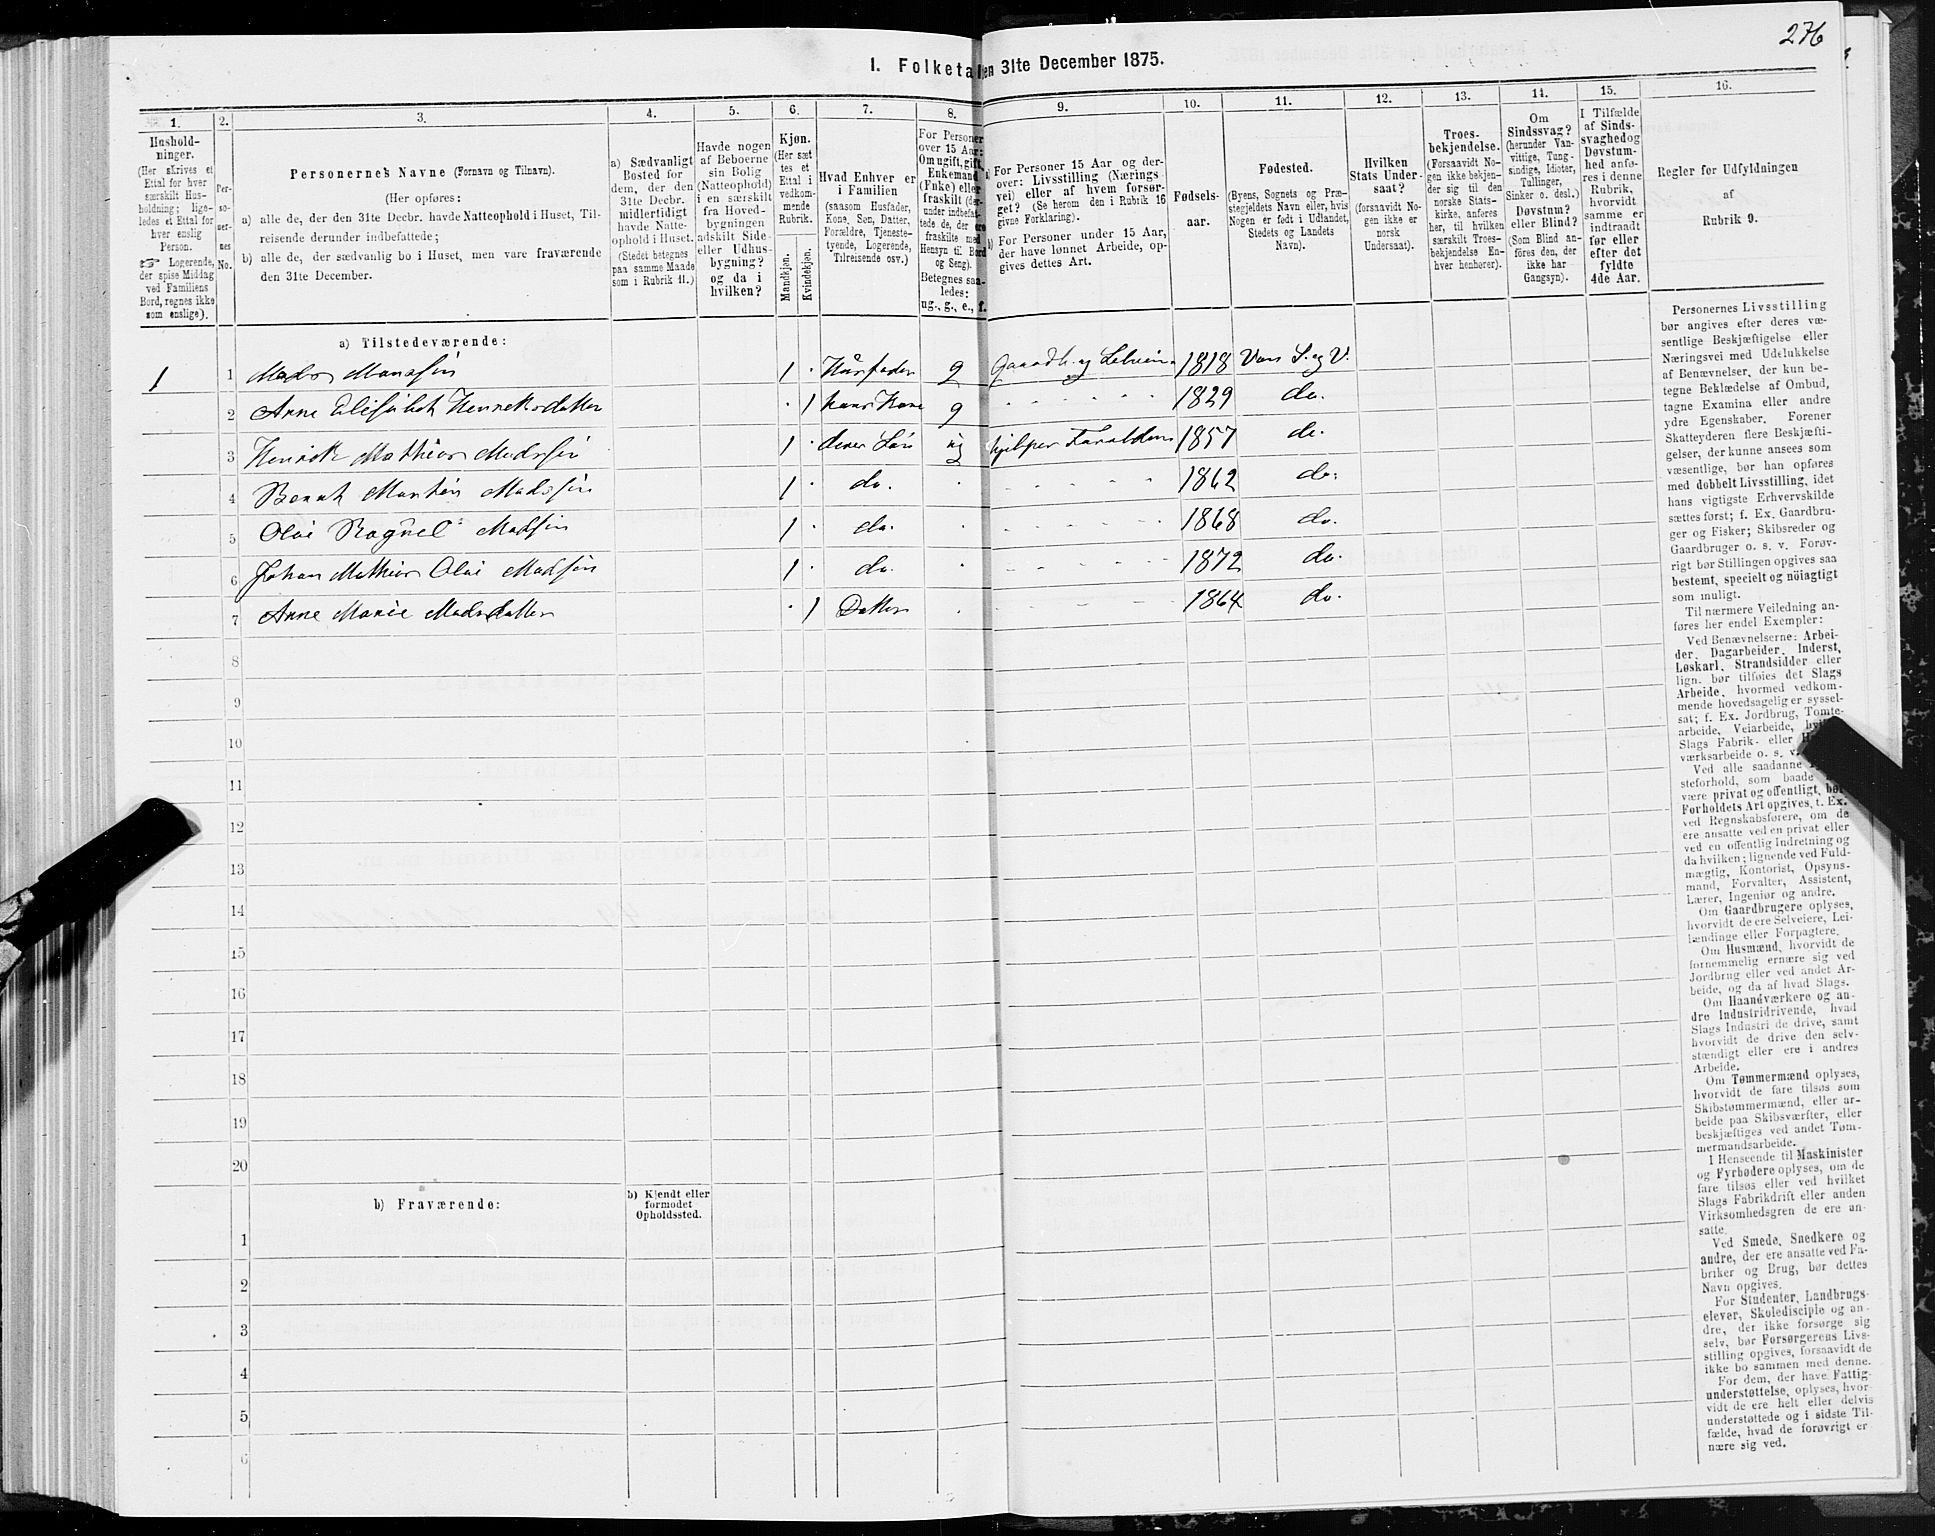 276
I. Folketa en 31te December 1875.
1. 2. 3. 4. 5. 6. 7. 8. 9. 10. 11. 12. 13. 14. 15. 16.
Hushold-
ninger.
(Her skrives et
Ettal for hver
særskilt Hus-
holdning; lige-
ledes et Ettal for
hver enslig
Person.
☞ Logerende,
der spise Middag
ved Familiens
Bord, regnes ikke
som enslige).
Per-
so-
ner-
nes
No.
Personernes Navne (Fornavn og Tilnavn).
(Her opføres:
a) alle de, der den 31te Decbr. havde Natteophold i Huset, Til-
reisende derunder indbefattede;
b) alle de, der sædvanlig bo i Huset, men vare fraværende
den 31te December.
a) Sædvanligt
Bosted for
dem, der den
31te Decbr.
midlertidigt
havde Natte-
ophold i Huset.
(Stedet betegnes
paa samme Maade
som i Rubrik 11.)
Havde nogen
af Beboerne
sin Bolig
(Natteophold)
i en særskilt
fra Hoved-
bygningen
adskilt Side-
eller Udhus-
bygning?
og da i
hvilken?
Kjøn.
(Her sæt
tes et
Ettal i
vedkom-
mende
Rubrik.
Mandkjøn.
Kvindekjøn.
Hvad Enhver er
i Familien
(saasom Husfader,
Kone, Søn, Datter,
Forældre, Tjeneste-
tyende, Logerende,
Tilreisende osv.)
For Personer
over 15 Aar:
Om ugift, gift,
Enkemand
(Enke) eller
fraskilt (der-
under indbefat-
tede de, der ere
fraskilte med
Hensyn til Bord
og Seng).
Betegnes saa-
ledes:
ug., g., e., f.
a) For Personer 15 Aar og der-
over: Livsstilling (Nærings-
vei) eller af hvem forsør-
get? (Se herom den i Rubrik 16
givne Forklaring).
b) For Personer under 15 Aar,
der have lønnet Arbeide, op-
gives dettes Art.
Fødsels-
aar.
Fødested.
(Byens, Sognets og Præ-
stegjeldets Navn eller, hvis
Nogen er født i Udlandet,
Stedets og Landets
Navn).
Hvilken
Stats Under-
saat?
(forsaavidt No-
gen ikke er
norsk
Undersaat).
Troes-
bekjendelse.
(Forsaavidt No-
gen ikke bekjen-
der sig til den
norske Stats-
kirke, anføres
her, til hvilken
særskilt Troes-
bekjendelse En-
hver henhører).
Om
Sindssvag?
(herunder Van-
vittige, Tung-
sindige, Idioter,
Tullinger,
Sinker o. desl.)
Døvstum?
eller Blind?
(Som Blind an-
føres den, der
ikke har
Gangsyn).
I Tilfælde
af Sinds-
svaghed og
Døvstum-
hed anfø-
res i denne
Rubrik,
hvorvidt
samme er
indtraadt
før eller
efter det
fyldte
4de Aar.
Regler for Udfyldningen
af
Rubrik 9.
a) Tilstedeværende:
1 1 Mads Monssøn 1 · Husfader g Gaardb. og Selveier 1818 Vars S. og V.
2 Anne Elisabet Henriksdatter · 1 hans Kone g 1829 do.
3 Henrik Mathias Madssøn 1 · deres Søn ug hjelper Forældrene 1857 do.
4 Bernt Martin Madssøn 1 · do. 1862 do.
5 Olai Ragnel Madssøn 1 · do. 1868 do.
6 Johan Mathias Olai Madssøn 1 · do. 1872 do.
7 Anne Marie Madsdatter · 1 Datter 1864 do.
8
9
10
11
12
13
14
15
16
17
18
19
20
b) Fraværende:
b) Kjendt eller
formodet
Opholdssted.
1
2
3
4
5
6
Personernes Livsstilling
bør angives efter deres væ-
sentlige Beskjæftigelse eller
Næringsvei med Udelukkelse
af Benævnelser, der kun be-
tegne Beklædelse af Ombud,
tagne Examina eller andre
ydre Egenskaber. Forener
Skatteyderen flere Beskjæfti-
gelser, der kunne ansees som
væsentlige, bør han opføres
med dobbelt Livsstilling, idet
hans vigtigste Erhvervskilde
sættes først; f. Ex. Gaardbru-
ger og Fisker; Skibsreder og
Gaardbruger o. s. v. Forøv-
rigt bør Stillingen opgives saa
bestemt, specielt og nöiagtigt
som muligt.
Til nærmere Veiledning an-
føres her endel Exempler:
Ved Benævnelserne: Arbei-
der, Dagarbeider, Inderst,
Løskarl, Strandsidder eller
lign. bør tilføies det Slags
Arbeide, hvormed vedkom-
mende hovedsagelig er syssel-
sat; f. Ex. Jordbrug, Tomte-
arbeide, Veiarbeide,
Slags Fabrik- eller
værksarbeide o. s. v.
Ved alle saadanne
steforhold, som baade
være privat og offentligt, bør
Forholdets Art opgives, t. Ex.
ved Regnskabsførere, om de
ere ansatte ved en privat eller
ved en offentlig Indretning og
da hvilken; lignende ved Fuld-
mægtig, Kontorist, Opsyns-
mand, Forvalter, Assistent,
Lærer, Ingeniør og andre.
Om Gaardbrugere oplyses,
hvorvidt de ere Selveiere, Lei-
lændinge eller Forpagtere.
Om Husmænd, hvorvidt de
fornemmelig ernære sig ved
Jordbrug eller ved andet Ar-
beide, og da af hvad Slags.
Om Haandværkere og an-
dre Industridrivende, hvad
Slags Industri de drive, samt
hvorvidt de drive den selv-
stændigt eller ere i andres
Arbeide.
Om Tømmermænd oplyses,
hvorvidt de fare tilsøs som
Skibstømmermænd, eller ar-
beide paa Skibsværfter, eller
beskjæftiges ved andet Tøm-
mermandsarbeide.
I Henseende til Maskinister
og Fyrbødere oplyses, om de
fare tilsøs eller ved hvilket
Slags Fabrikdrift eller anden
Virksomhedsgren de ere an-
satte.
Ved Smede, Snedkere og
andre, der ere ansatte ved Fa-
briker og Brug, bør dettes
Navn opgives.
For Studenter, Landbrugs-
elever, Skoledisciple og an-
dre, der ikke forsørge sig
selv, bør Forsørgerens Livs-
stilling opgives, forsaavidt de
ikke bo sammen med denne.
For dem, der have Fattig-
understøttelse, oplyses, hvor-
vidt de ere helt eller delvis
understøttede og i sidste Til-
fælde, hvad de forøvrigt er-
nære sig ved.